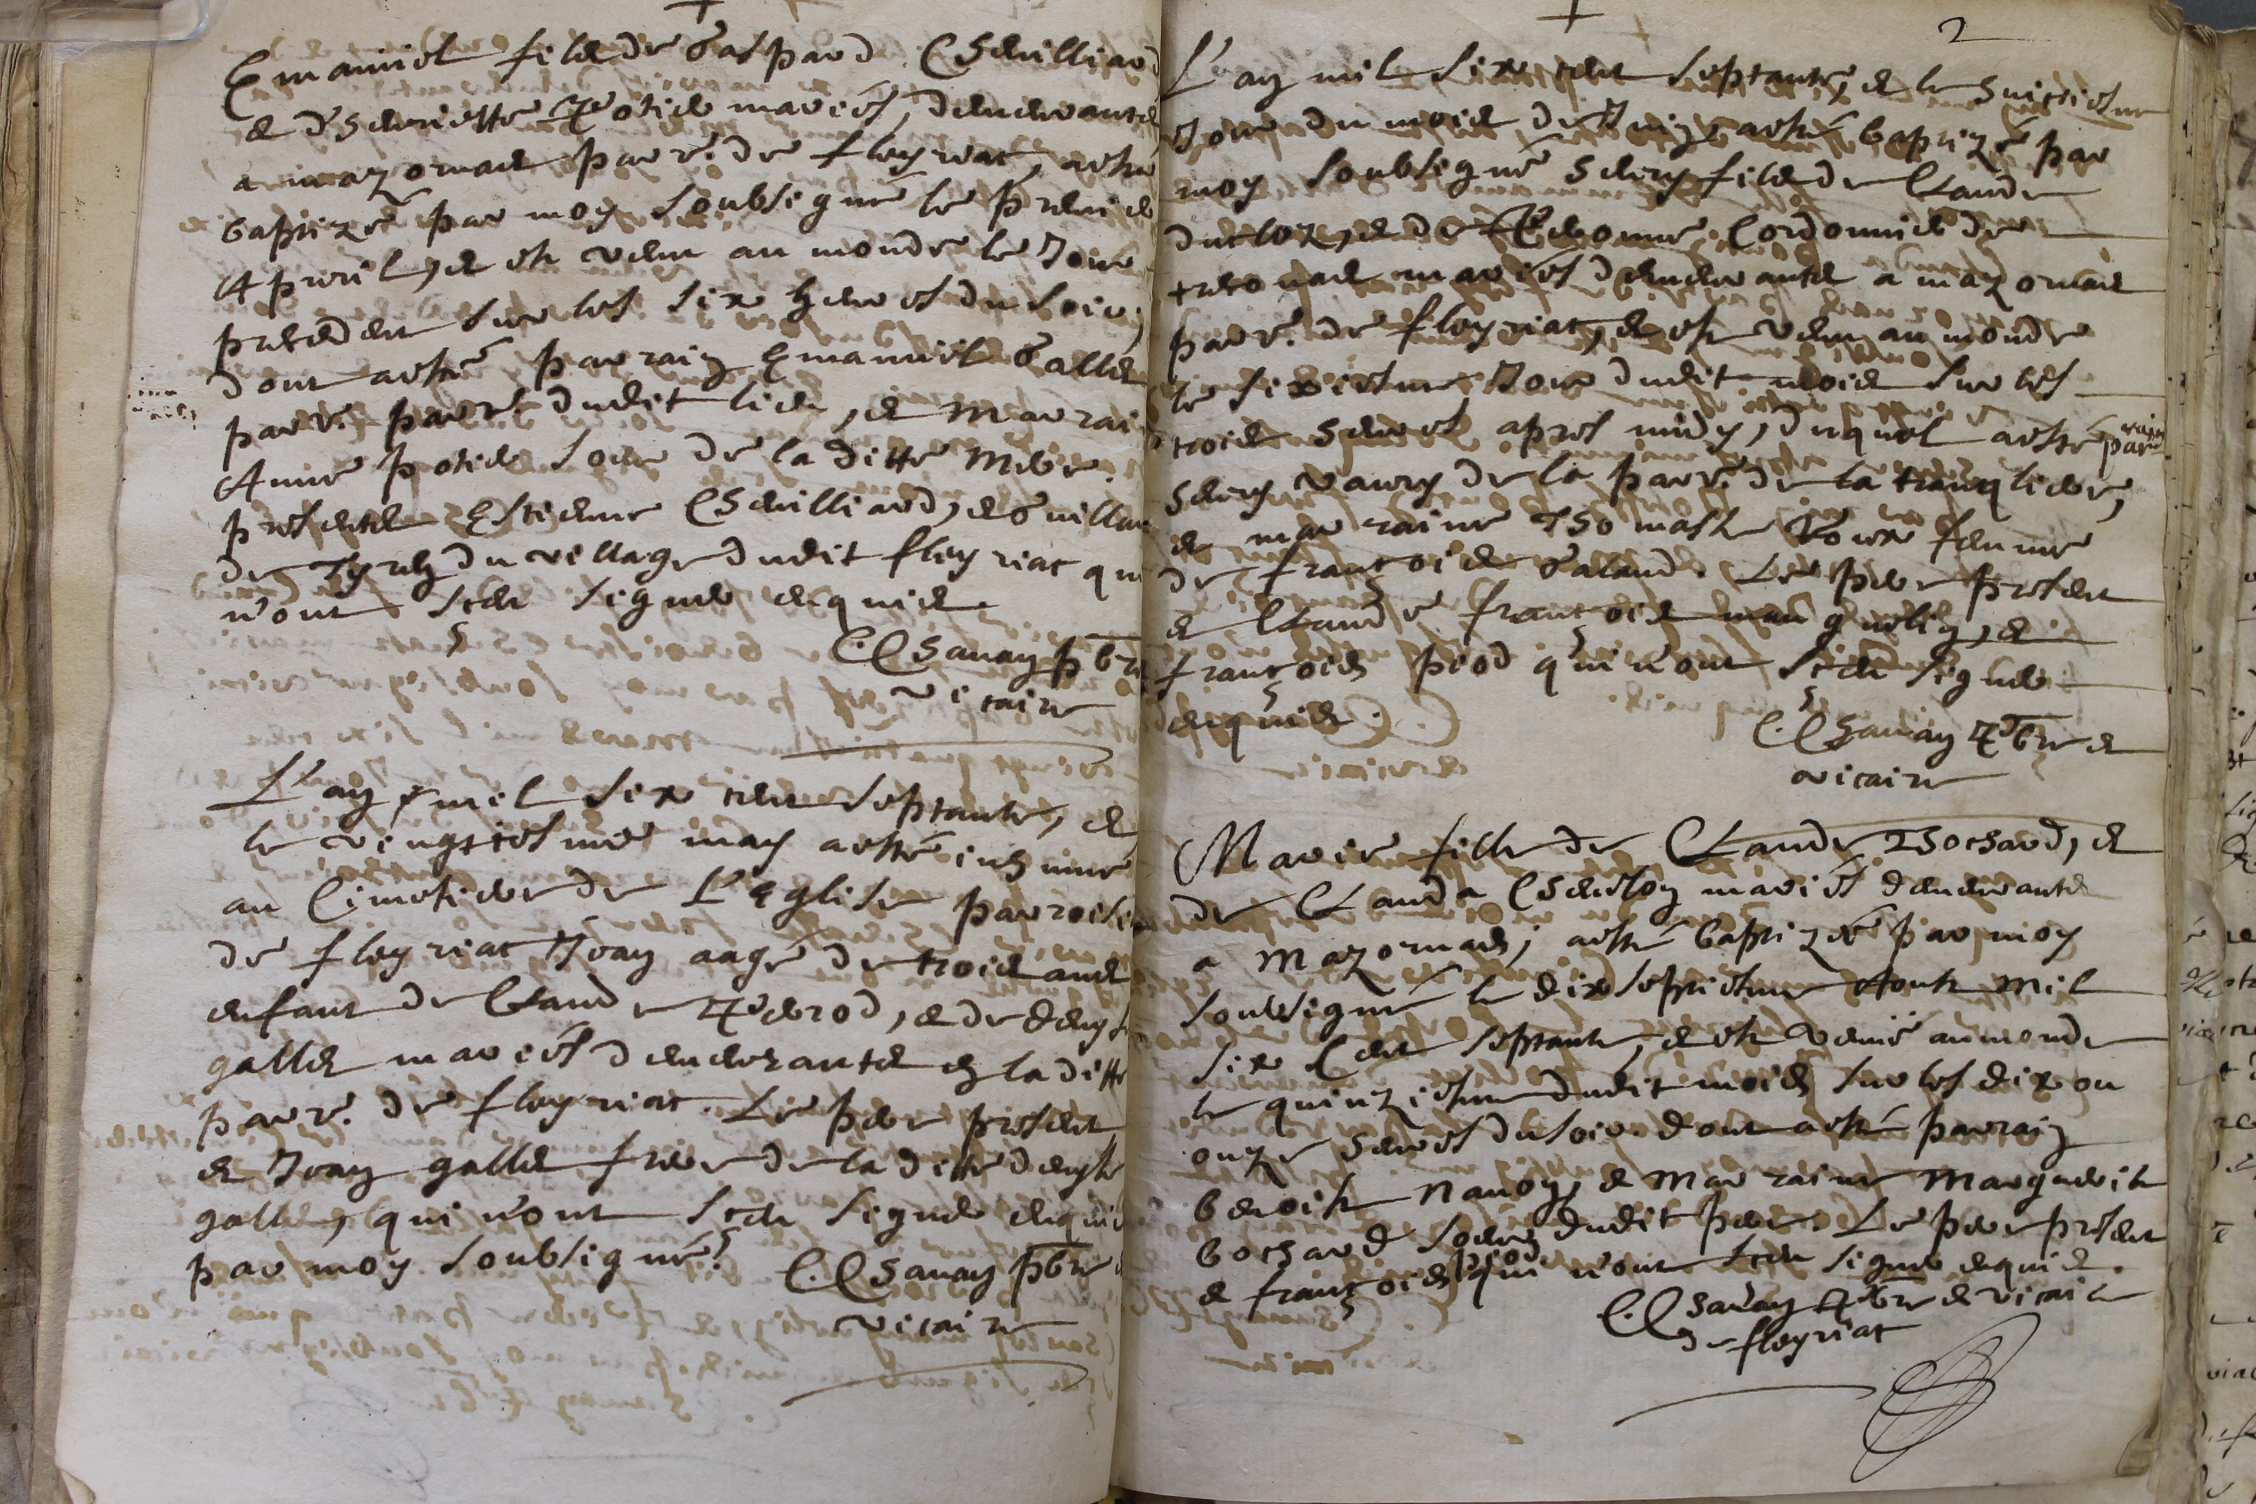 Emanuel filz de Gaspard Chevilliard
et d'Henriette Potier mariés, demeurants
a mazornas parr. de fleyriat, a esté
baptizé par moy soubsigné le premier
Apvril, et est venu au monde le Jour
precedent sur les six heures du soir,
dont a esté parrain Emanuel Gallet
parr. parr. dudit lieu, et marrai
Anne potier soeur de la ditte mere.
presents Estienne Chevilliard, et Guillau
de du village dudit fleyriat qui
n'ont sceu signer enquis.
C. Chanay pbre
vicaire
L'an mil six cent septante, et
le vingtiesme may a esté inhumé
au Cimetiere de L'Eglise parroisi
de fleyriat Jean aagé de trois ans
enfant de Claude, et de denyse
gallet mariés demeurants en la ditte
parr. de fleyriat. Le pere present
et Jean gallet frere de la ditte denyse
gallet, qui n'ont sceu signer enquis
par moy soubsigné. C. Chanay pbre
vicaire
2
L'an mil six cent septante, et le huictiesme
Jour du mois de Juin, a esté baptizé par
moy soubsigné henry filz de Claude
ducloz, et de Pernonne Cordonnier de
tresonas mariés demeurants a mazornas
parr. de fleyriat, et est venu au monde
le sixiesme Jour dudit mois sur les
trois heures apres midy, duquel a esté parrain
henry vaury de la parr. de la tranqliere,
et marraine Thomasse femme
de françois Galand. Le pere present
et Claude françois, et
françois peod qui n'ont sceu signer
enquis.
C. Chanay Pbre et
vicaire
Marie fille de Claude Bochard, et
de Clauda mariés demeurants
a Mazornas, a esté baptizée par moy
soubsigné le dixseptiesme Aoust mil
six Cent septante, et est venuë au monde
le quinziesme dudit mois sur les dix ou
onze heures du soir. dont a esté parrain
benoist nanoy, et marraine Marguerite
bochard soeur dudit pere. Le pere present
et françois peod qui n'ont sceu signer enquis.
C. Chanay Pbre et vicaire
de fleyriat